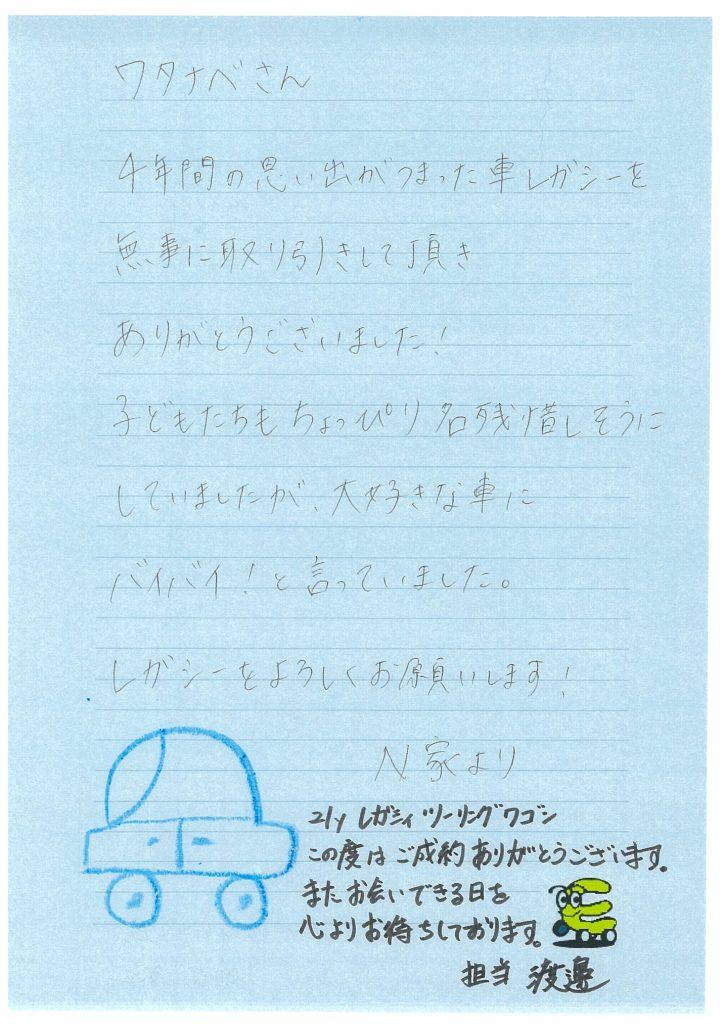 ワタナベさん
4年間の思い出がつまった車レガシーを
無事に取り引きして頂き
ありがとうございました!
子どもたちもちょっぴり名残惜しそうに
していましたが、大好きな車に
バイバイ!と言っていました。
レガシーをよろしくお願いします!
N家より
21y レガシィツーリングワゴン
この度はご成約ありがとうございます。
またお会いできる日を
心よりお待ちしております。
担当 渡邉